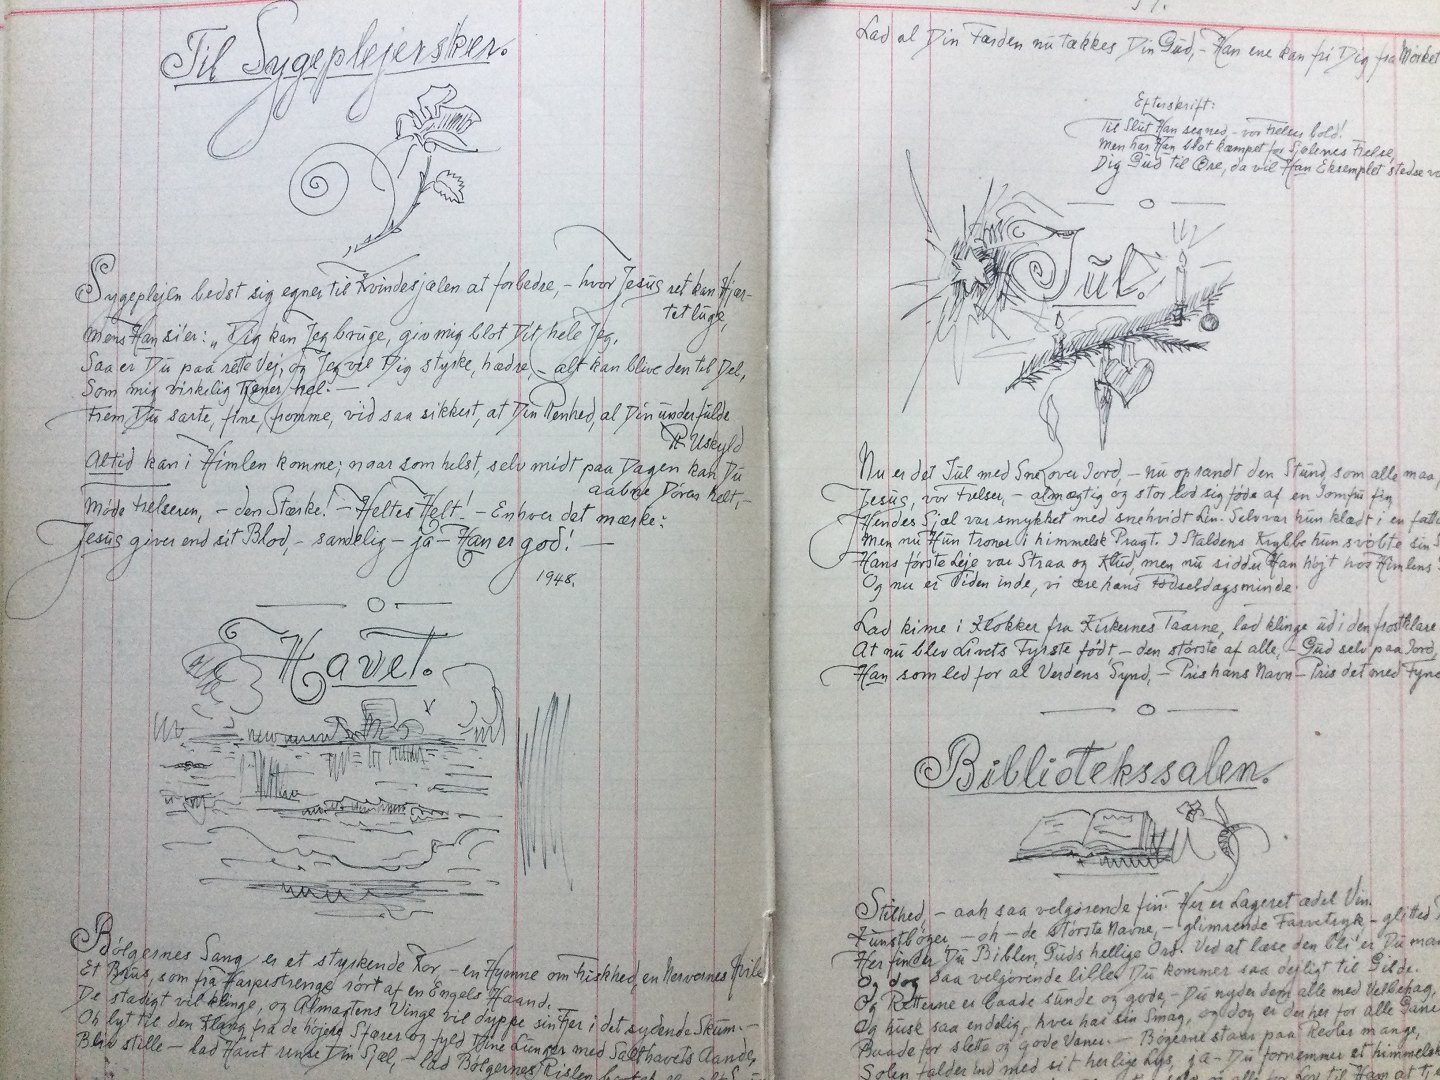 Til Sygeplejersker.
Sygeplejen bedst sig egner til Kvindesjælen at forbedre, – hvor Jesus ret kan Hjær-
tet luge,
mens Han si'er: „Dig kan Jeg bruge, giv mig blot Dit hele Jeg,
Saa er Du paa rette Vej, og Jeg vil Dig styrke, hædre, – alt kan blive den til Del,
Som mig virkelig tjener hel. –
Frem, Du sarte, fine, fromme, vid saa sikkert, at Din Renhed, al Din underfulde
Uskyld
Altid kan i Himlen komme; naar som helst, selv midt paa Dagen kan Du
aabne Dören helt, –
Möde Frelseren, – den Stærke! – Heltes Helt! – Enhver det mærke:
Jesus giver end sit Blod, – sandelig – ja – Han er god! –
1948.
Havet.
Bölgernes Sang er et styrkende Kor, – en Hymne om Friskhed, en Nervernes Hvile
Et Brus, som fra Harpestrenge rört af en Engels Haand.
De stadigt vil klinge, og Almagtens Vinge vil dyppe sin Fjer i det sydende Skum. –
Oh lyt til den Klang fra de höjere Sfærer og fyld Dine Lunger med Salthavets Aande,
Bliv stille – lad Havet rense Din Sjæl, – lad Bölgernes Rislen
51.
Lad al Din Færden nu tækkes Din Gud, – Han ene kan fri Dig fra Mörket
Efterskrift:
Til Slut Han segned, – vor Frelses bold!
Men har Han blot kæmpet for Sjælenes Frelse,
Dig Gud til Ære, da vil Han Eksemplet stedse
Jul.
Nu er det Jul med Sne over Jord, – nu oprandt den Stund, som alle maa,
Jesus, vor Frelser, – almægtig og stor lod sig föde af en Jomfru fin
Hendes Sjæl var smykket med snehvidt Lin. Selv var hun klædt i en
Men nu Hun troner i himmelsk Pragt. I Staldens Krybbe hun svöbte sin
Hans förste Leje var Straa og Klud, men nu sidder Han höjt hos Himlens
Og nu er Tiden inde, vi ære hans Födselsdagsminde.
Lad kime i Klokker fra Kirkernes Taarne, lad klinge ud i den frostklare
At nu blev Livets Fyrste födt – den störste af alle, – Gud selv paa Jord,
Han som led for al Verdens Synd, – Pris hans Navn – Pris det med Fynd
Bibliotekssalen.
Stilhed, – aah saa velgörende fin. Her er Lageret ædel Vin.
Kunstböger, – oh – de störste Navne, – glimrende Farvetryk – glitted
Her finder Du Biblen, Guds hellige Ord. Ved at læse den bli'er Du
Og dog saa velgörende lille. Du kommer saa dejligt til Gilde.
Og Retterne er baade sunde og gode, – Du nyder dem alle med Velbehag,
Og husk saa endelig, hver har sin Smag, og dog er der her for alle
Baade for slette og gode Vaner. – Bögerne staar paa Reoler mange,
Solen falder ind med sit herlige Lys, ja – Du fornemmer et himmelsk